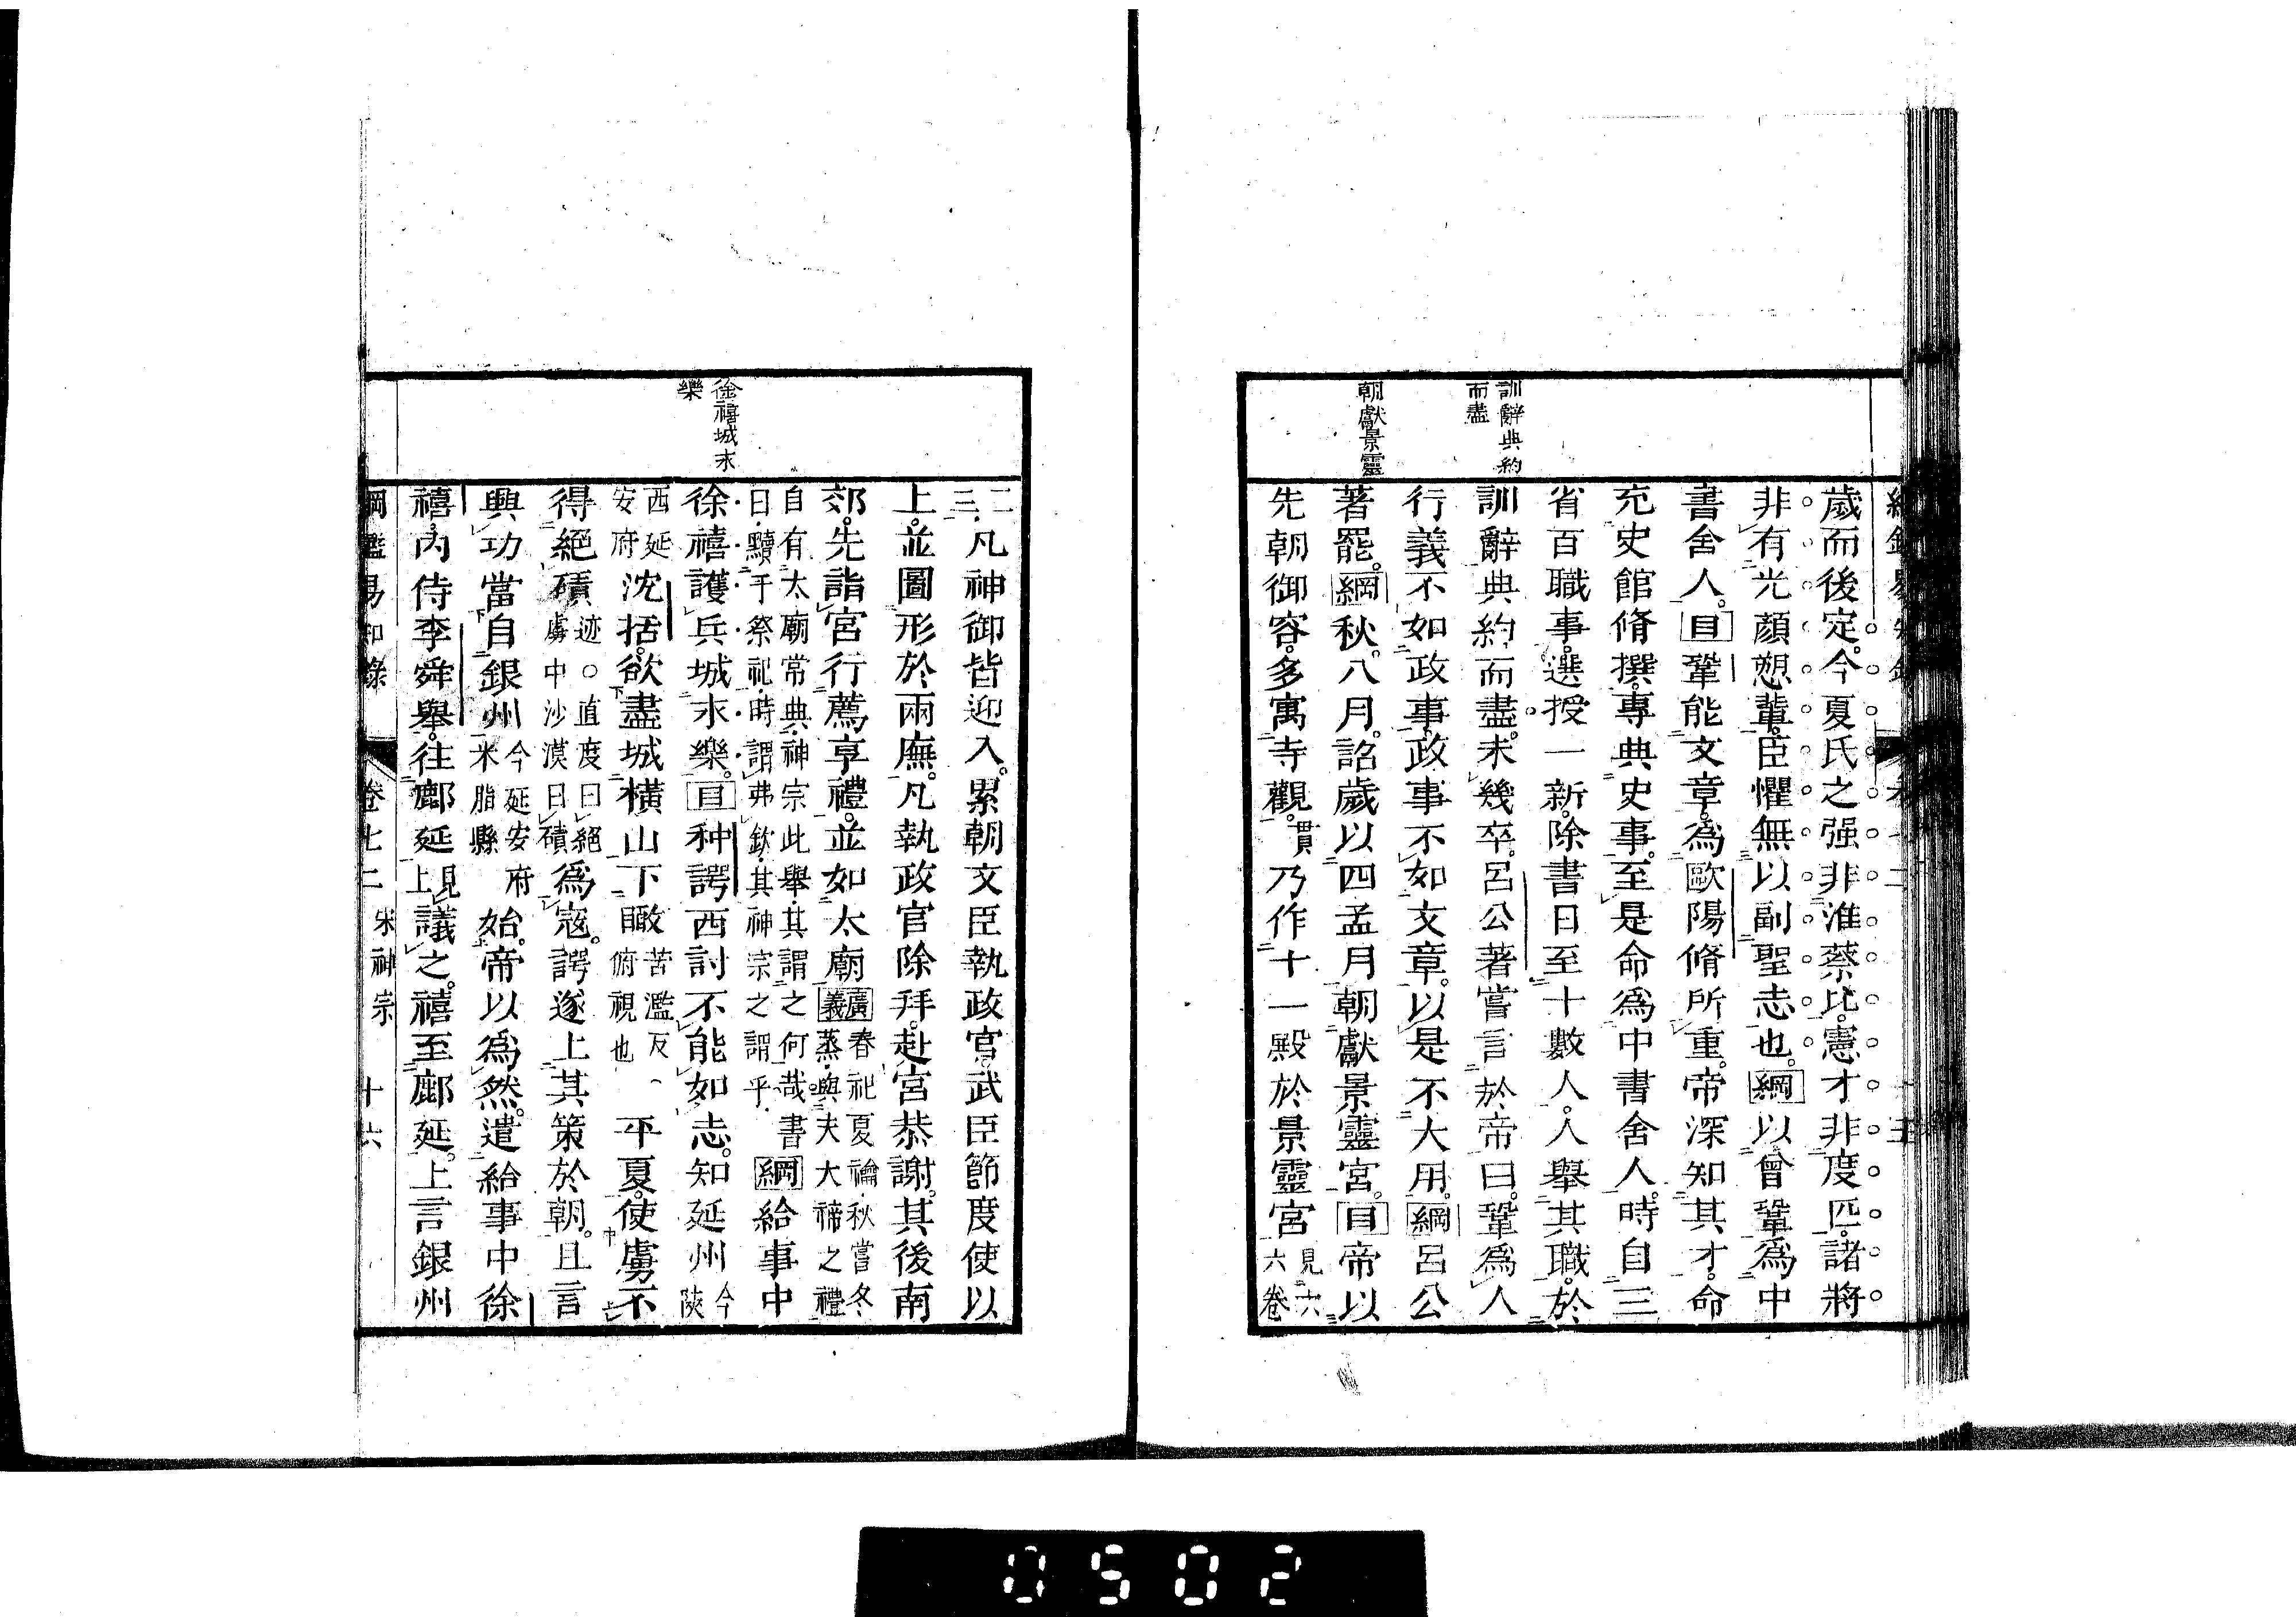 訓辭典約
而盡
朝獻景靈
歲而後定。今夏氏之强非淮蔡比。憲才非度匹。諸將
非有光顔愬輩。臣懼無以副聖志也。綱以曾鞏爲中
書舍人。目鞏能文章。爲歐陽脩所重。帝深知其才。命
充史館脩撰。專典史事。至是命爲中書舍人。時自三
省百職事。選授一新。除書日至十數人。人舉其職。於
訓辭典約而盡。未幾卒。呂公著嘗言於帝曰。鞏爲人
行義不如政事。政事不如文章。以是不大用。綱呂公
著罷。綱秋。八月。詔歲以四孟月朝獻景靈宮。目帝以
先朝御容。多寓寺觀。貫乃作十一殿於景靈宮見六六卷
徐禧城末
樂
二三凡神御皆迎入。累朝文臣執政官武臣節度使以
上。並圖形於兩廡。凡執政官除拜。赴宮恭謝。其後南
郊。先詣宮行薦享禮。並如太廟廣義春祀夏禴秋嘗冬蒸與夫大禘之禮
自有太廟常典神宗此舉其謂之何哉書曰黷于祭祀時謂弗欽其神宗之謂乎綱給事中
徐禧護兵城末樂。目种諤西討不能如志。知延州今陝
西延安府沈括。欲盡城橫山下瞰苦濫反俯視也平夏。使虜不
得絕磧迹○直度曰絕虜中沙漠曰磧爲寇。諤遂上其策於朝。且言
興功當自銀州今延安府米脂縣始。帝以爲然。遣給事中徐
禧。內侍李舜舉。往鄜延見上議之。禧至鄜延。上言銀州
綱鑑易知錄 卷七二 宋神宗 十六